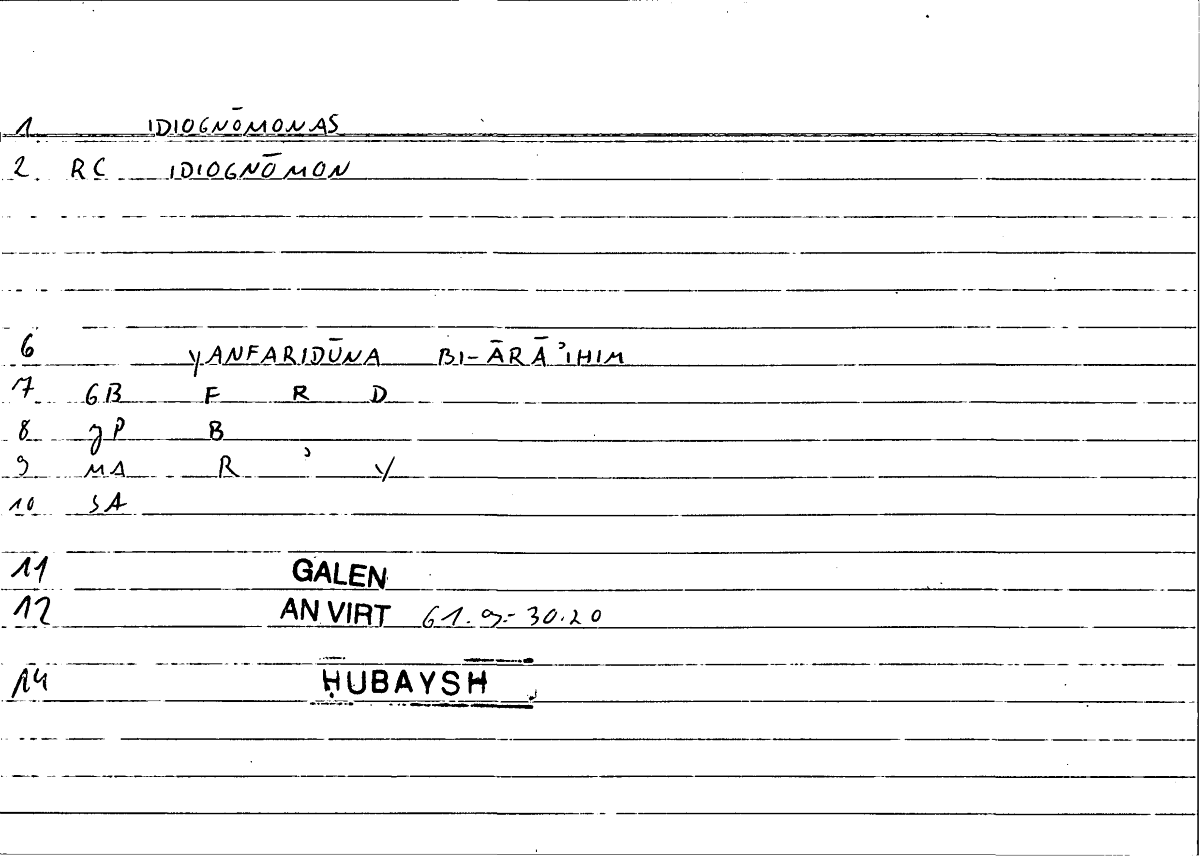 1 IDIOGNŌMONAS
2. RC IDIOGNŌMON
6 YANFARIDŪNA BI-ĀRĀʾIHIM
7 GB F R D
8 JP B
9 MA R ʾ Y
10 SA
11 GALEN
12 AN VIRT 61.9-30.20
14 ḤUBAYSH